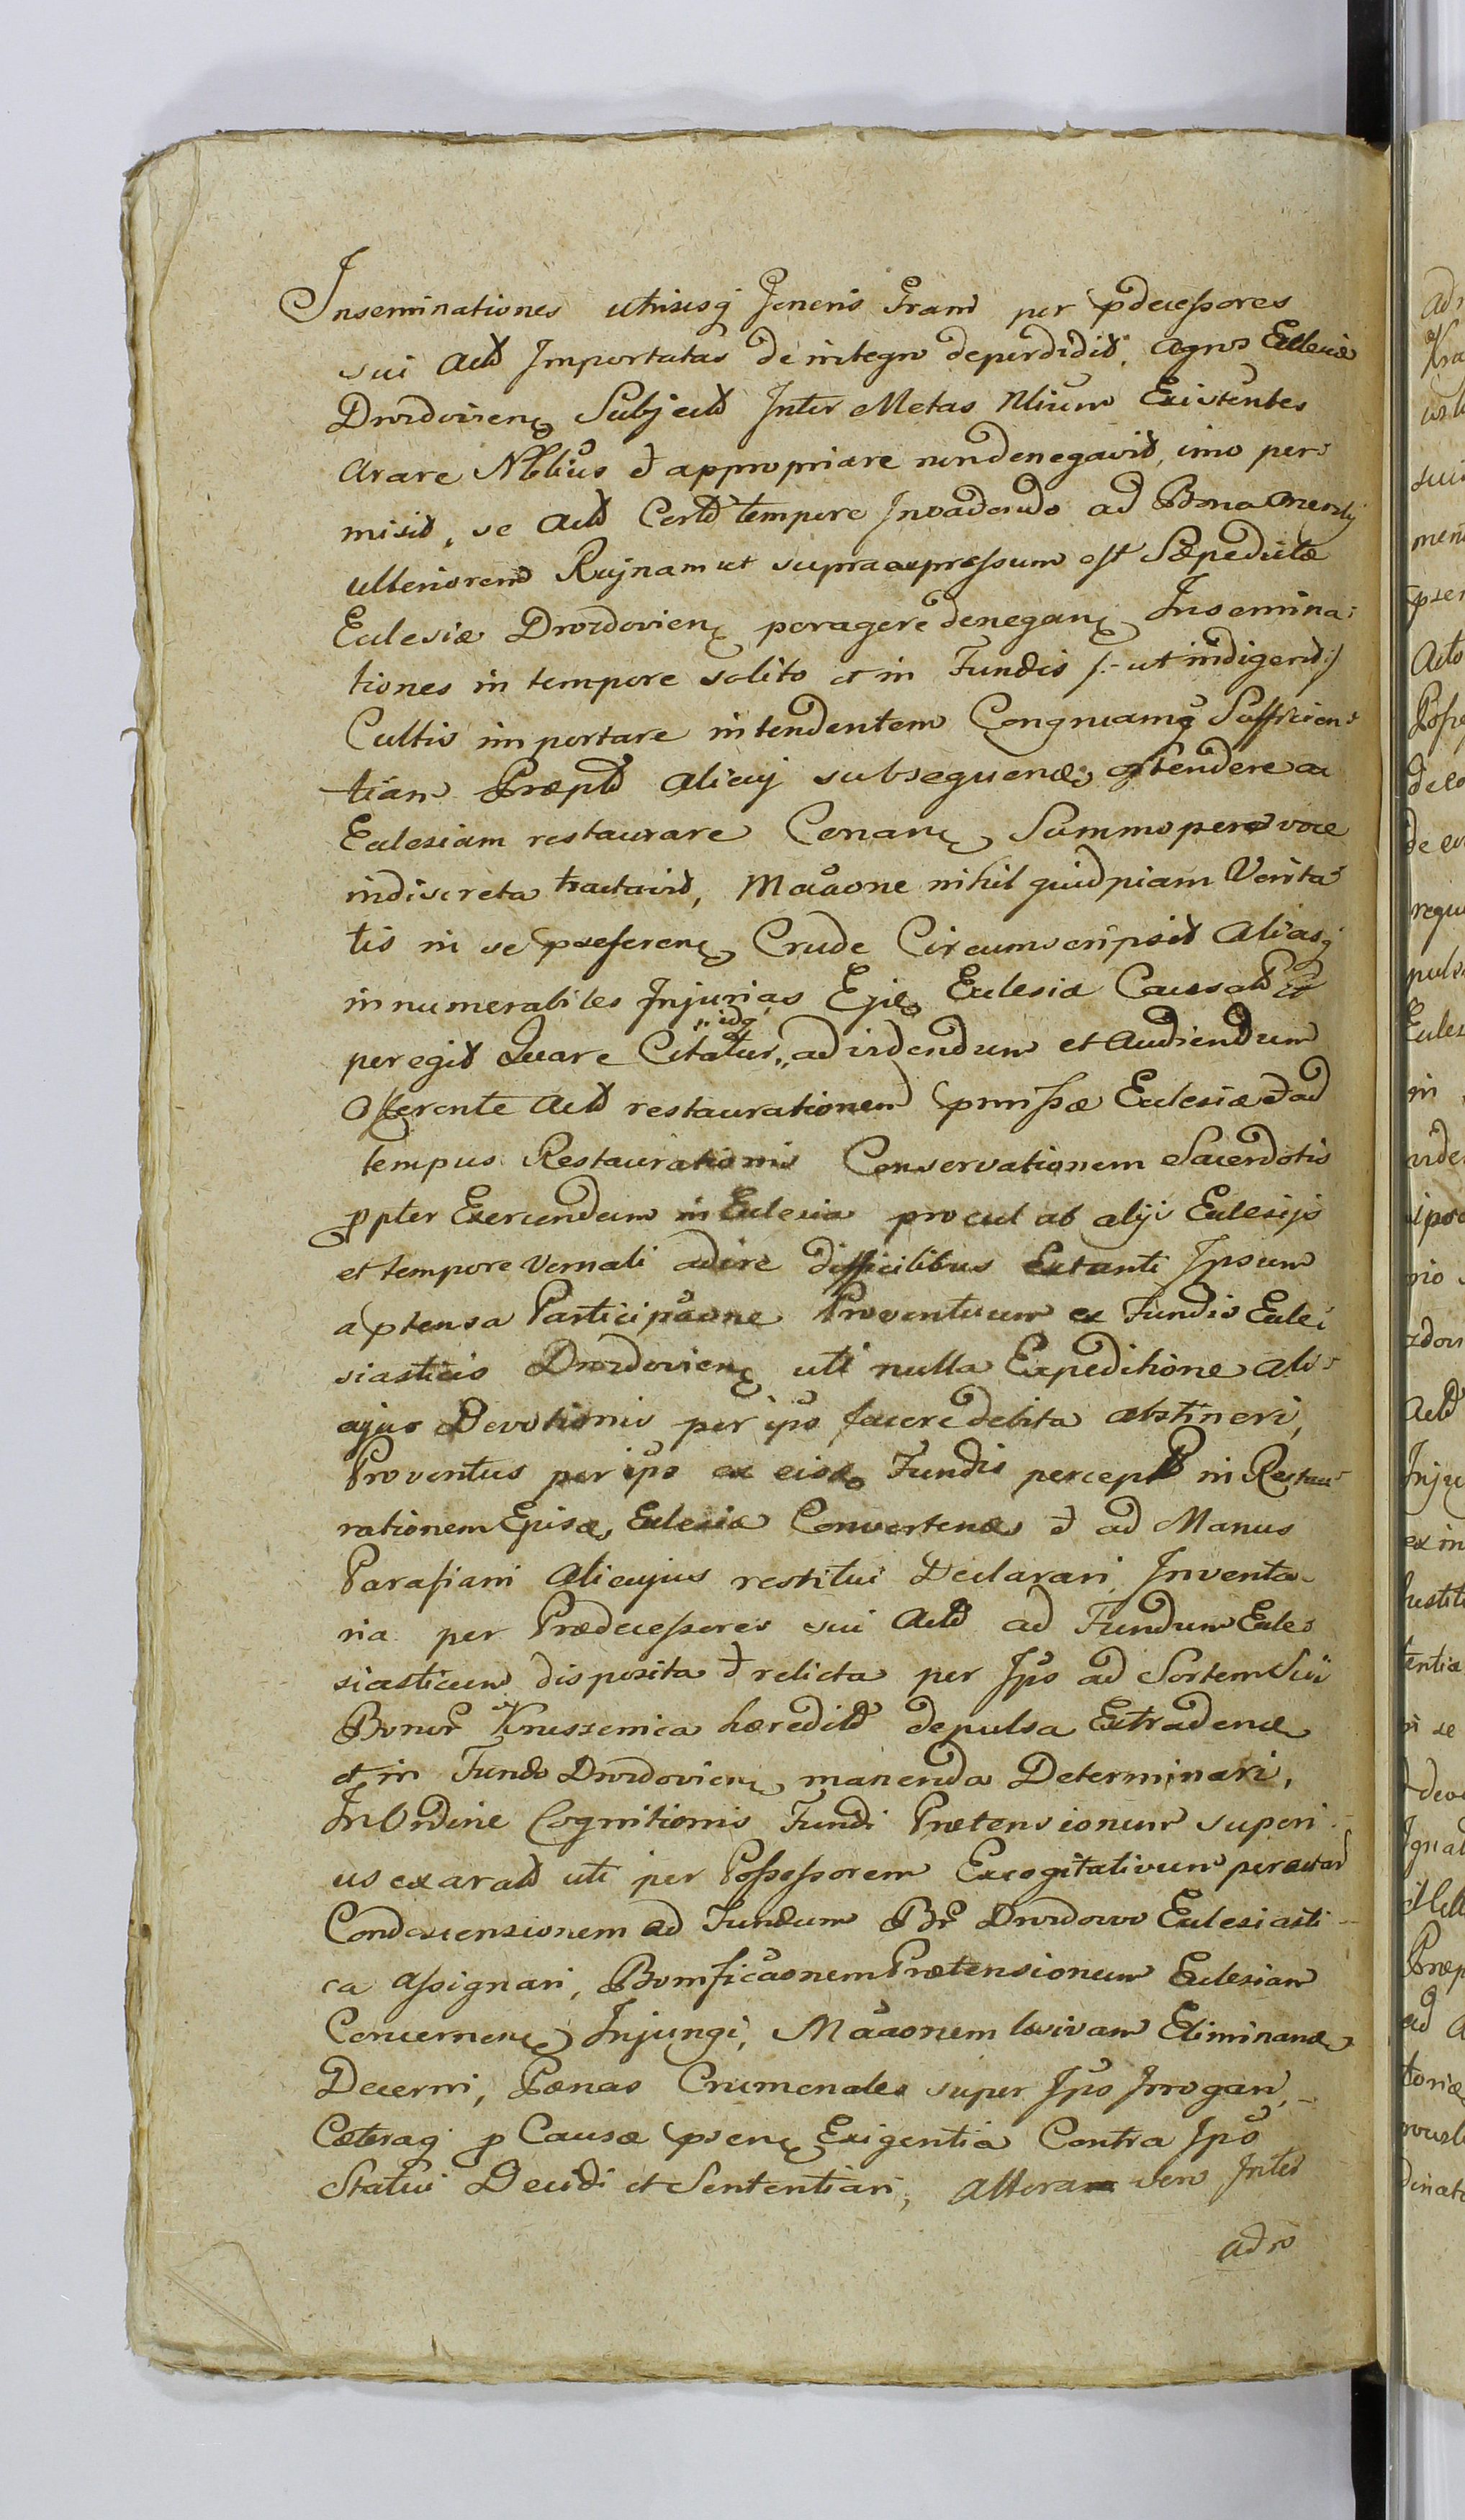 Inseminationes utriusq Generis Gran per pdecessores
sui Actt Importatas de integro deperdidit, Agros Ecclesiæ
Drozdovien Subject Inter Metas Nlium Existentes
Arare Nblius et appropriare non denegavit, imo per-
misit, se Actt Certt tempore Invadendo ad Bona
ulteriorem Rujnam ut supraexpressum est Sæpedictæ
Ecclesiæ Drozdovien peragere denegan Insemina-
tiones in tempore solito et in Fundis /:ut indigent:/
Cultis importare intendentem Congruamq Sufficien-
tiam Præptt alicuj subsequen ostendere ac
Ecclesiam restaurare Conan Summopere voce
indiscreta tractavit, Maaone nihil quidpiam Verita-
tis in se pseferen Crude Circumscripsit Aliasq
innumerabiles Injurias Ejd Ecclesiæ Causat et
peregit Quare Citatur „ idq „ ad videndum et Audiendum
Offerente Actt restaurationem pmissæ Ecclesiæ et ad
tempus Restaurationis Conservationem Sacerdotis
ppter Exercendum in Ecclesia procul ab alijs Ecclesijs
et tempore Vernali adire difficilibus Extanti Ipsum
a ptensa Participaone Proventuum ex Fundis Eccle-
siasticis Drozdovien uti nulla Expeditione ali-
cujus Devotionis per ips facere debita abstineri,
Proventus per ips ex eisd Fundis percept in Restau-
rationem Ejusd Ecclesiæ Converten et ad Manus
Parafiani Alicujus restitui Declarari, Inventa-
ria per Prædecessores sui Actt ad Fundum Eccle-
siasticum disposita et relicta per Ips ad Sortem Sui
Bonor Kruszenica hæredit depulsa Extraden
et in Fundo Drozdovien manenda Determinari,
In Ordine Cognitionis Fundi Prætensionum superi-
us exarat uti per Possessorem Excogitativum peractar
Condescensionem ad Fundum Br Drozdowo Ecclesiasti-
ca Assignari, BonificaonemPrætensionum Ecclesiam
Concernen Injungi, Maaonem læsivam Eliminan
Decerni, Pænas Crimenales super Ips Irrogari,
Cæteraq p Causæ psen Exigentia Contra Ips
Statui Decidi et Sententiari, Altera vero Intt
adro